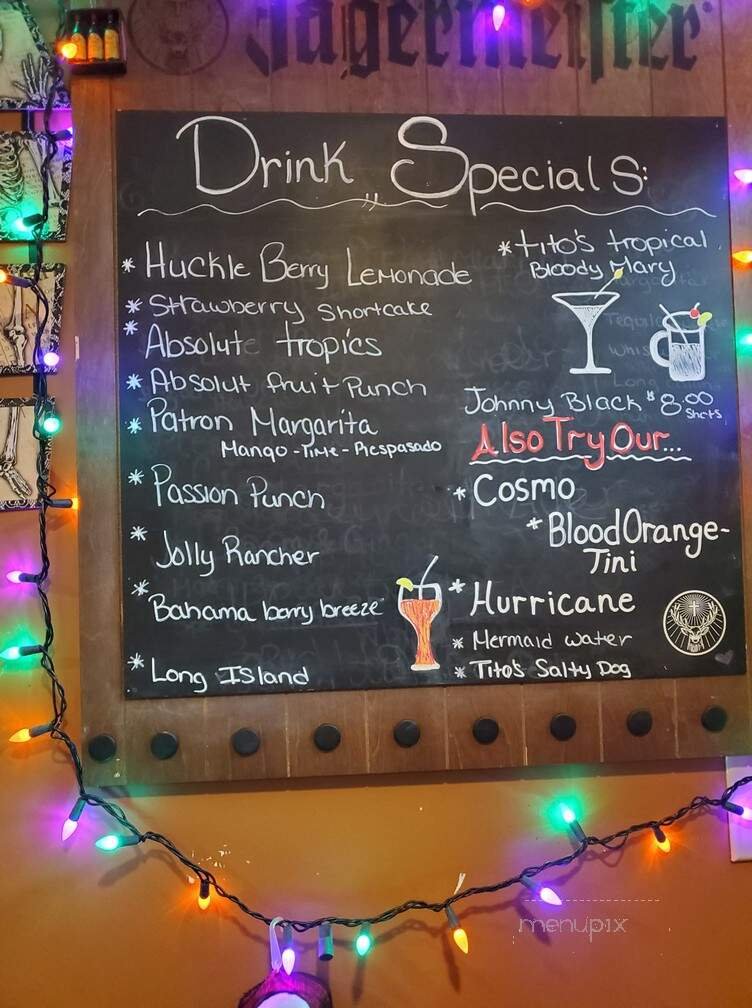 Jägermeister
Drink Specials:
* Huckle Berry Lemonade
* Strawberry Shortcake
* Absolute tropics
* Absolut fruit Punch
* Patron Margarita
Mango - Time - Picspasado
* Passion Punch
* Jolly Rancher
* Bahama berry breeze
* Long Island
* tito's tropical
Bloody Mary
Johnny Black $8.00
Shots
Also Try Our...
* Cosmo
* Blood Orange-
Tini
* Hurricane
* Mermaid water
* Tito's Salty Dog
menupix